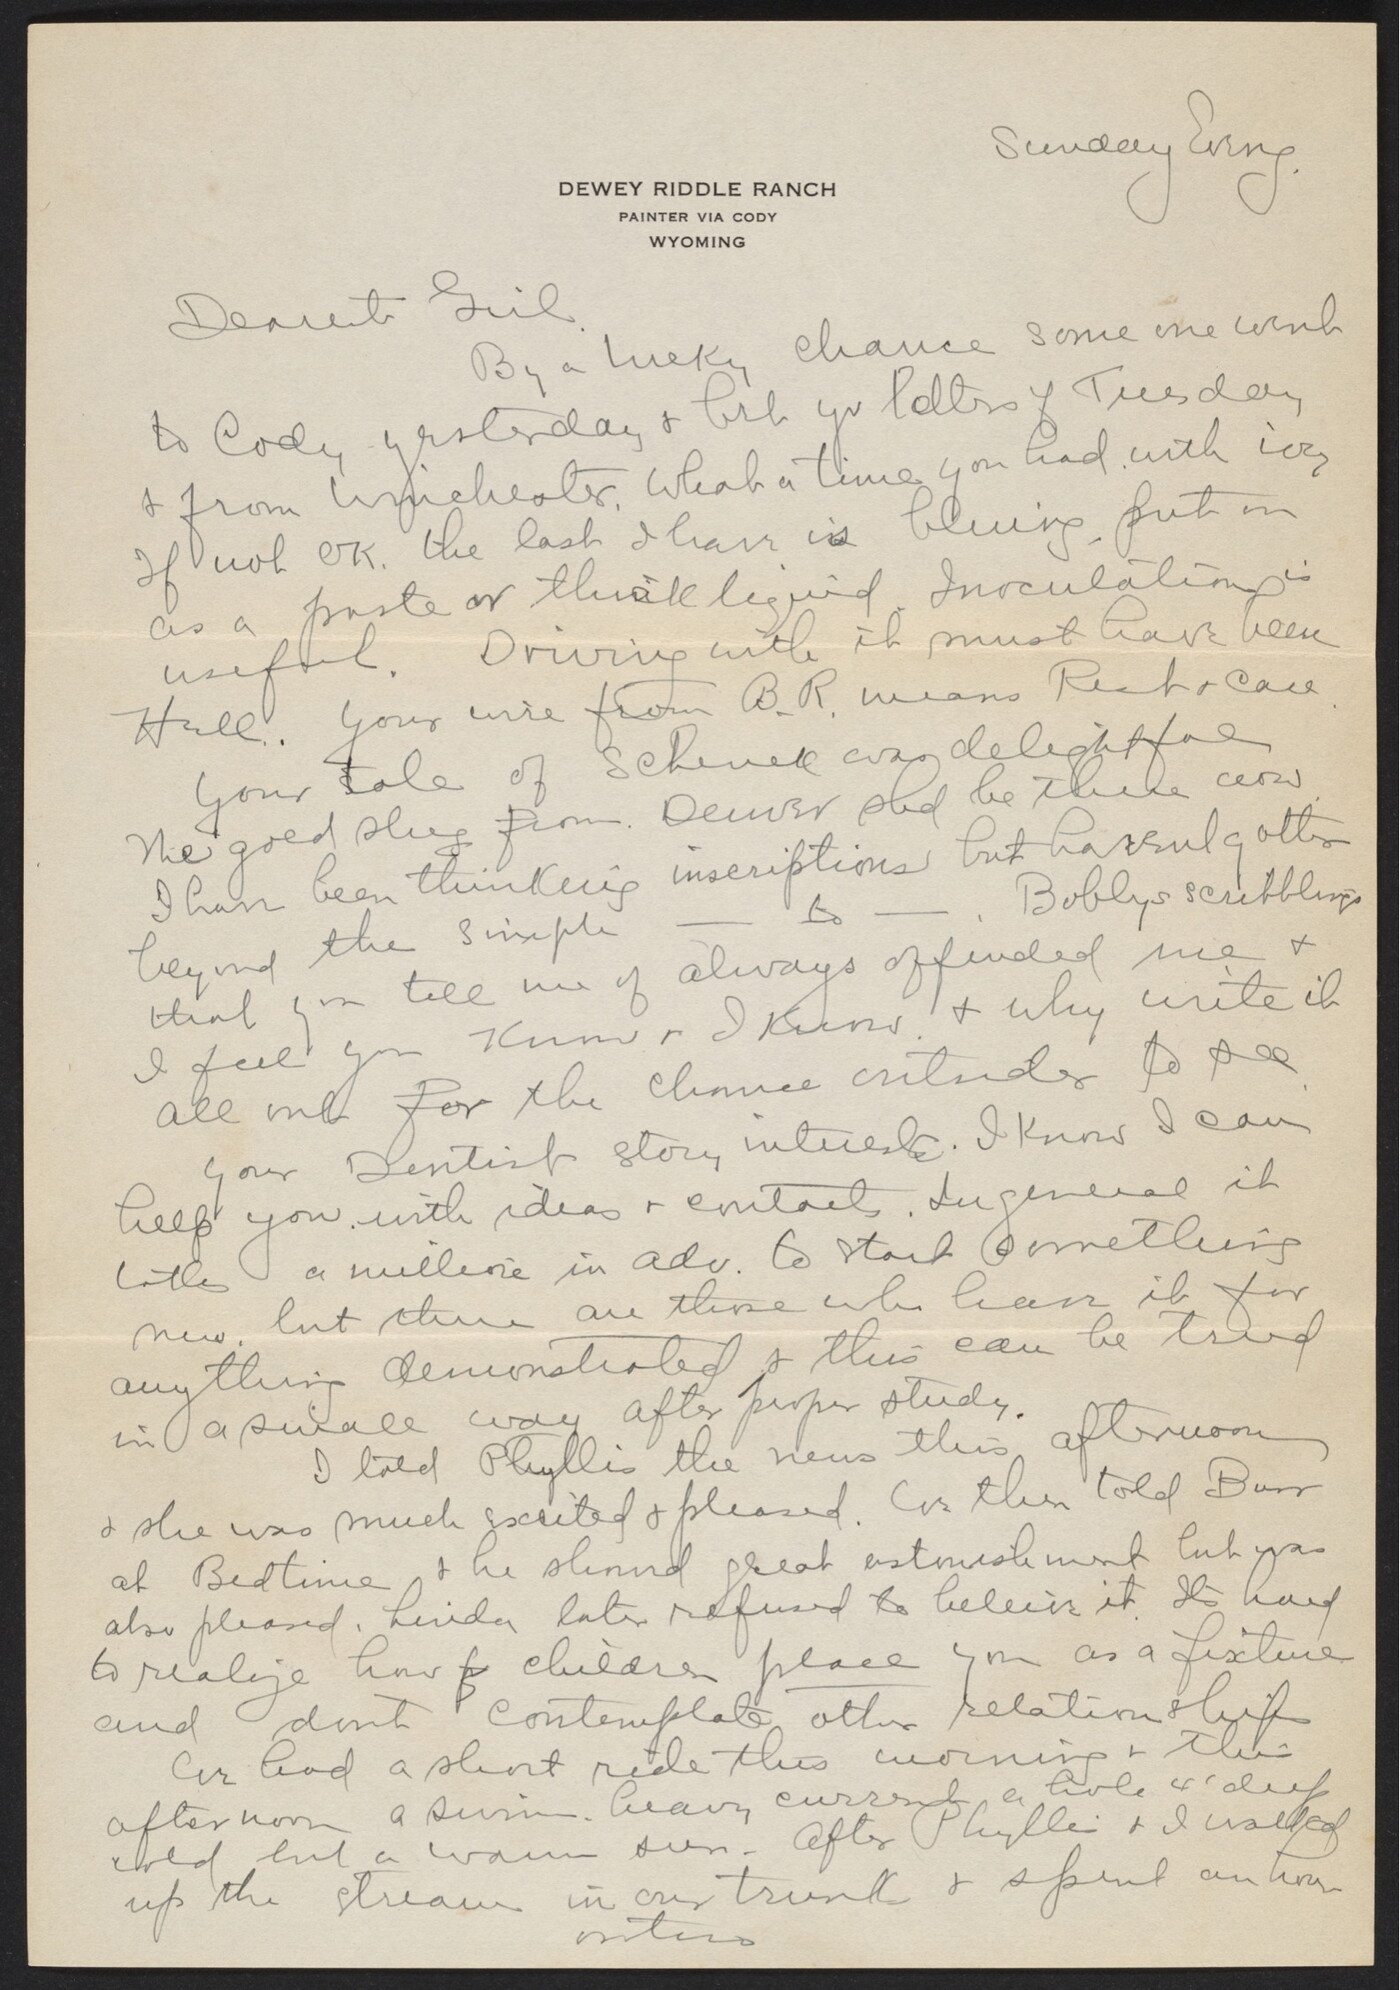 Sunday Evng.
DEWEY RIDDLE RANCH
PAINTER VIA CODY
WYOMING
Dearest Girl.
By a lucky chance some one went
to Cody yesterday & brt yr ldtrs of Tuesday
& from Winchester. What a time you had with ivy
If not OK. the last I have is bluing, put on
as a paste or thick liquid. Inoculation is
useful. Driving with it must have been
Hell. Your wire from B.R. means Rest & Care.
Your tale of Schenck was delightful
The gold slug from Denver shd be there now.
I have been thinking inscriptions but havent gotten
beyond the simple — to — . Bobbys scribblings
that you tell me of always offended me &
I feel you know & I know. & why write it
all out for the chance outsider to see.
Your Dentist story interests. I know I can
help you with ideas & contacts. In general it
takes a million in adv. to start something
new. but there are those who have it for
anything demonstrated & this can be tried
in a small way after proper study.
I told Phyllis the news this afternoon
& she was much excited & pleased. We then told Burr
at Bedtime & he showed great astonishment but was
also pleased. Linda later refused to beleive it. Its hard
to realize how children place you as a fixture
and dont contemplate other relationships
We had a short ride this morning & this
afternoon a swim. heavy current a hole 4' deep
cold but a warm sun. After Phyllis & I walked
up the stream in our trunks & spent an hour